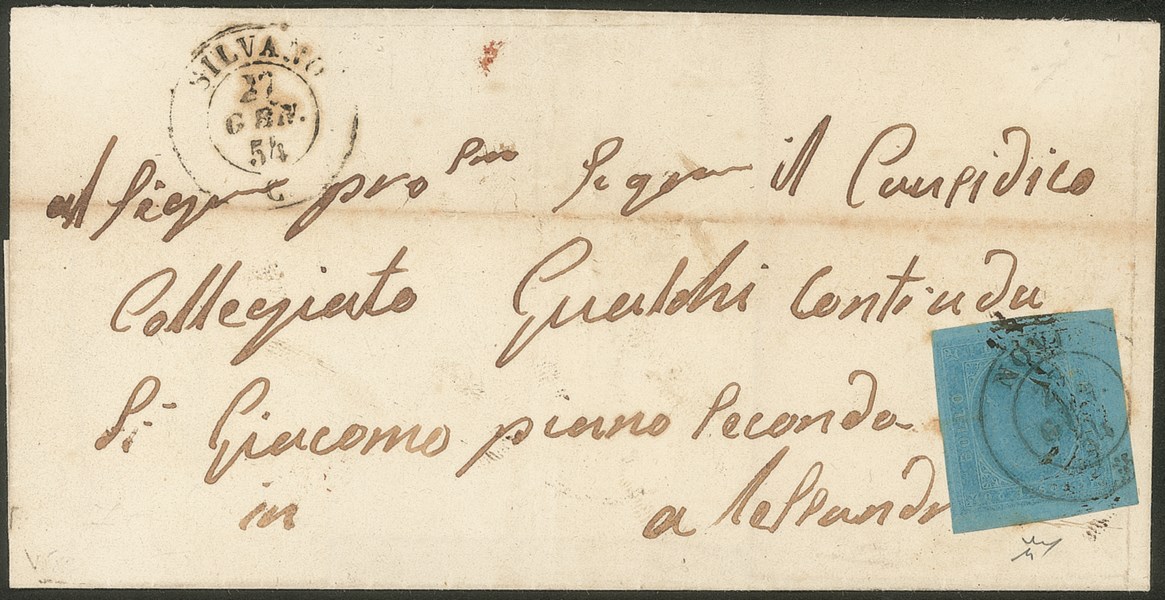 SILVANO
27
GEN.
54
al Sigr pro Sigr il Causidico
Collegiato Gualchi Contrada
S. Giacomo piano Secondo
in alessandr